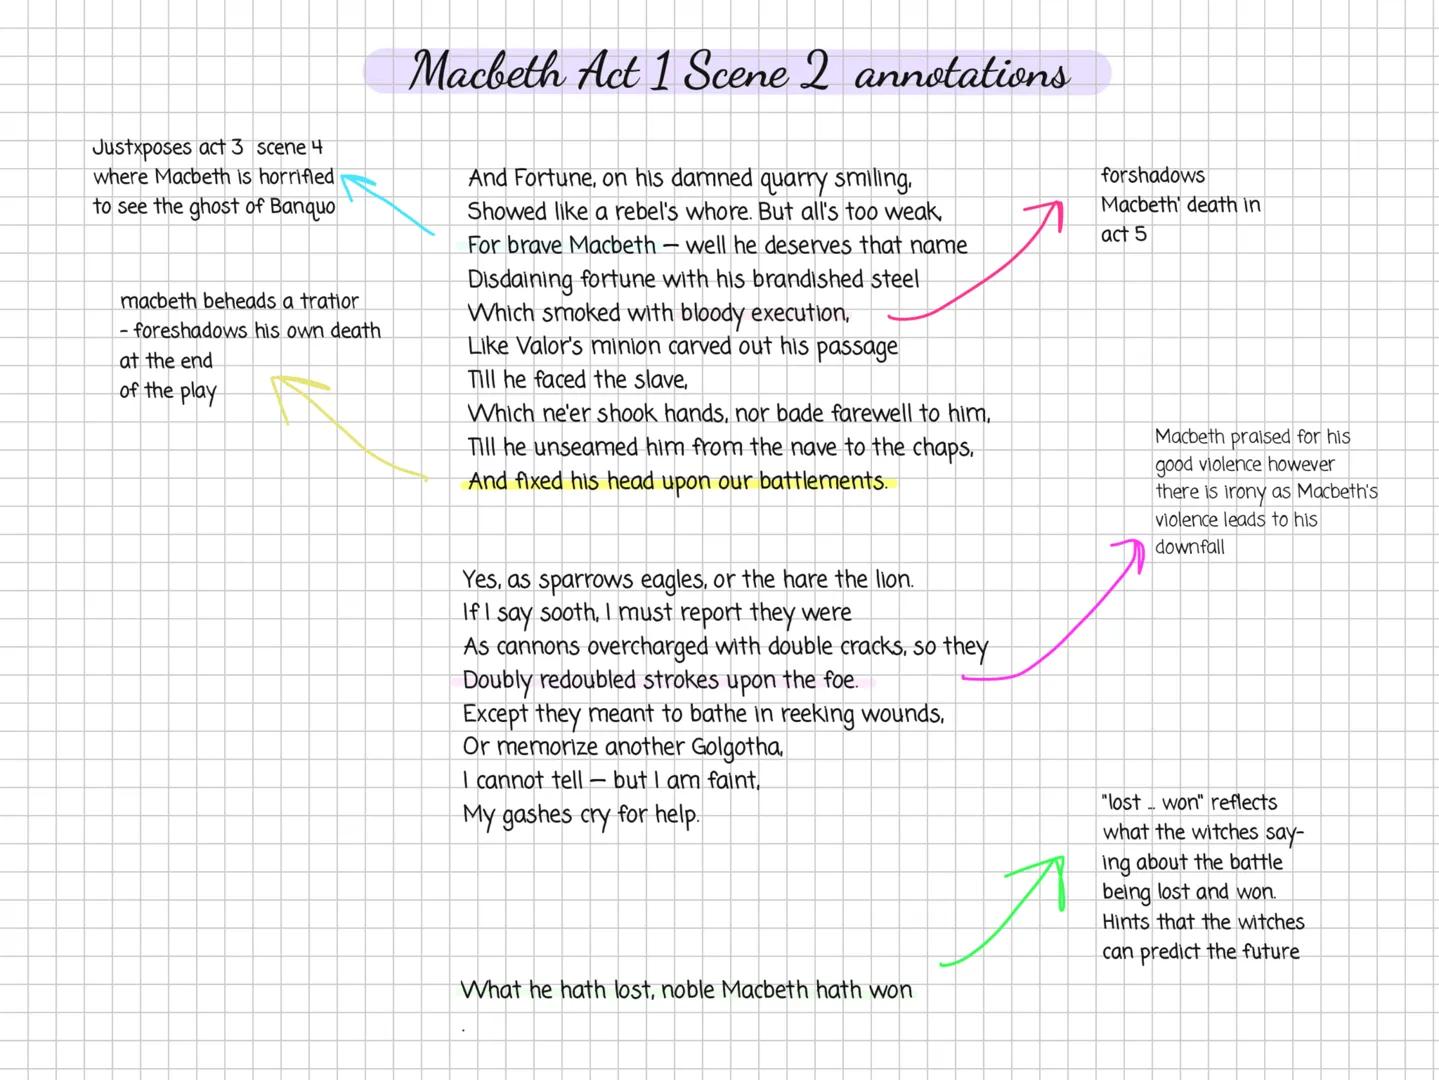 Macbeth Act 1 Scene 2 annotations
Justxposes act 3 scene 4
where Macbeth is horrified
to see the ghost of Banquo
macbeth beheads a tratior
- foreshadows his own death
at the end
of the play
And Fortune, on his damned quarry smiling,
Showed like a rebel's whore. But all's too weak,
For brave Macbeth – well he deserves that name
Disdaining fortune with his brandished steel
Which smoked with bloody execution,
Like Valor's minion carved out his passage
Till he faced the slave,
Which ne'er shook hands, nor bade farewell to him,
Till he unseamed him from the nave to the chaps,
And fixed his head upon our battlements.
forshadows
Macbeth' death in
act 5
Yes, as sparrows eagles, or the hare the lion.
If I say sooth, I must report they were
As cannons overcharged with double cracks, so they
Doubly redoubled strokes upon the foe.
Except they meant to bathe in reeking wounds,
Or memorize another Golgotha,
I cannot tell – but I am faint,
My gashes cry for help.
Macbeth praised for his
good violence however
there is irony as Macbeth's
violence leads to his
downfall
What he hath lost, noble Macbeth hath won
.
"lost ... won" reflects
what the witches say-
ing about the battle
being lost and won.
Hints that the witches
can predict the future